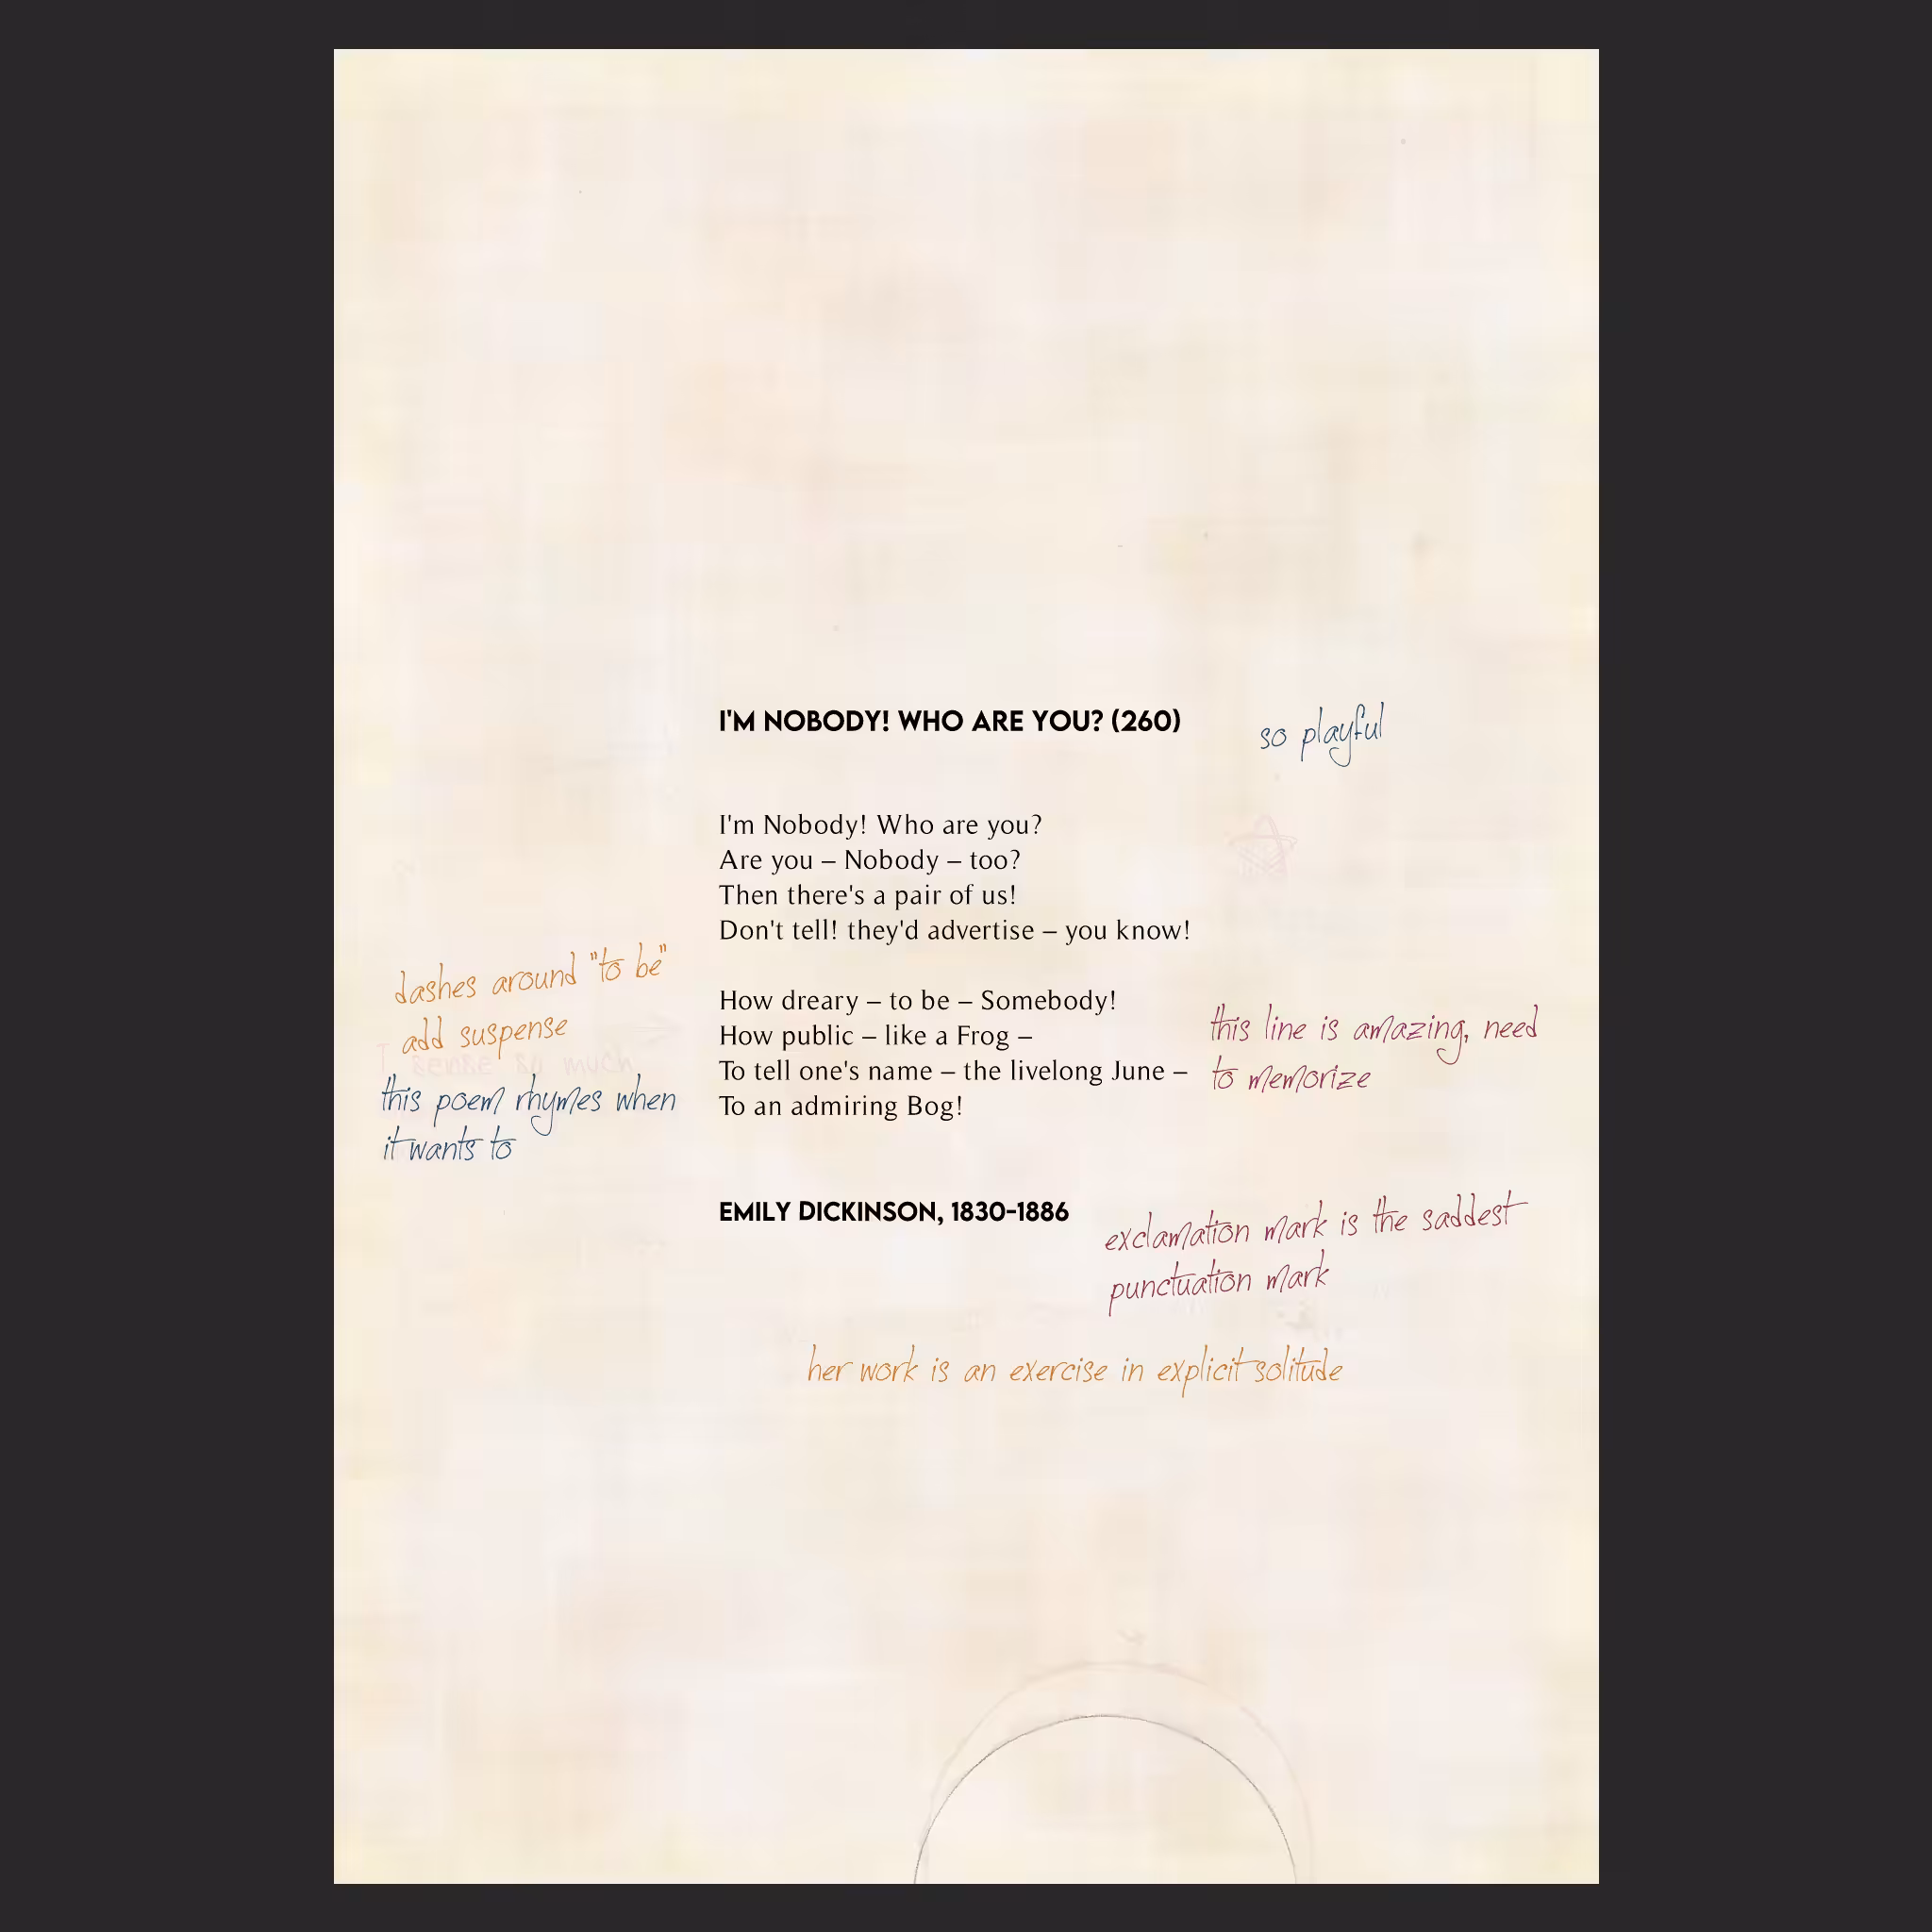 I'M NOBODY! WHO ARE YOU? (260)
so playful
I'm Nobody! Who are you?
Are you – Nobody – too?
Then there's a pair of us!
Don't tell! they'd advertise – you know!
dashes around "to be"
add suspense
I sense so much
this poem rhymes when
it wants to
How dreary – to be – Somebody!
How public – like a Frog –
To tell one's name – the livelong June –
To an admiring Bog!
this line is amazing, need
to memorize
EMILY DICKINSON, 1830-1886
exclamation mark is the saddest
punctuation mark
her work is an exercise in explicit solitude